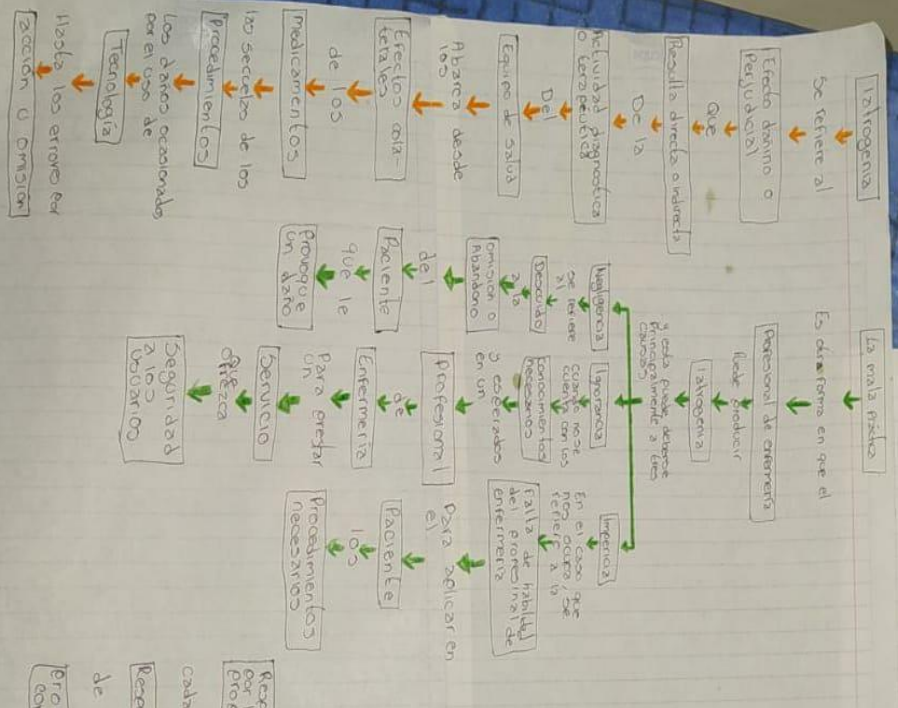 Iatrogenia
Se refiere al
Efecto dañino o
Perjudicial
Que
Resulta directa o indirecta
De la
Actividad diagnostica
o terapeutica
Del
Equipo de salud
Abarca desde
los
Efectos cola-
terales
de los
medicamentos
las secuelas de los
Procedimientos
Los daños ocasionados
por el uso de
Tecnología
Hasta los errores por
acción u omisión
La mala Práctica
Es otra forma en que el
Profesional de enfermería
Puede producir
Iatrogenia
y esta puede deberse
principalmente a tres
causas
Negligencia
se refiere
al
Descuido
a la
omisión o
Abandono
del
Paciente
que le
Provoque
un daño
Ignorancia
cuando no se
cuenta con los
conocimientos
necesarios
y esperados
en un
Profesional
de
Enfermería
Para prestar
un
Servicio
que
ofrezca
Seguridad
a los
usuarios
Impericia
En el caso que
nos ocupa, se
refiere a la
Falta de habilidad
del profesinal de
enfermería
Para aplicar en
el
Paciente
los
Procedimientos
necesarios
cada
de